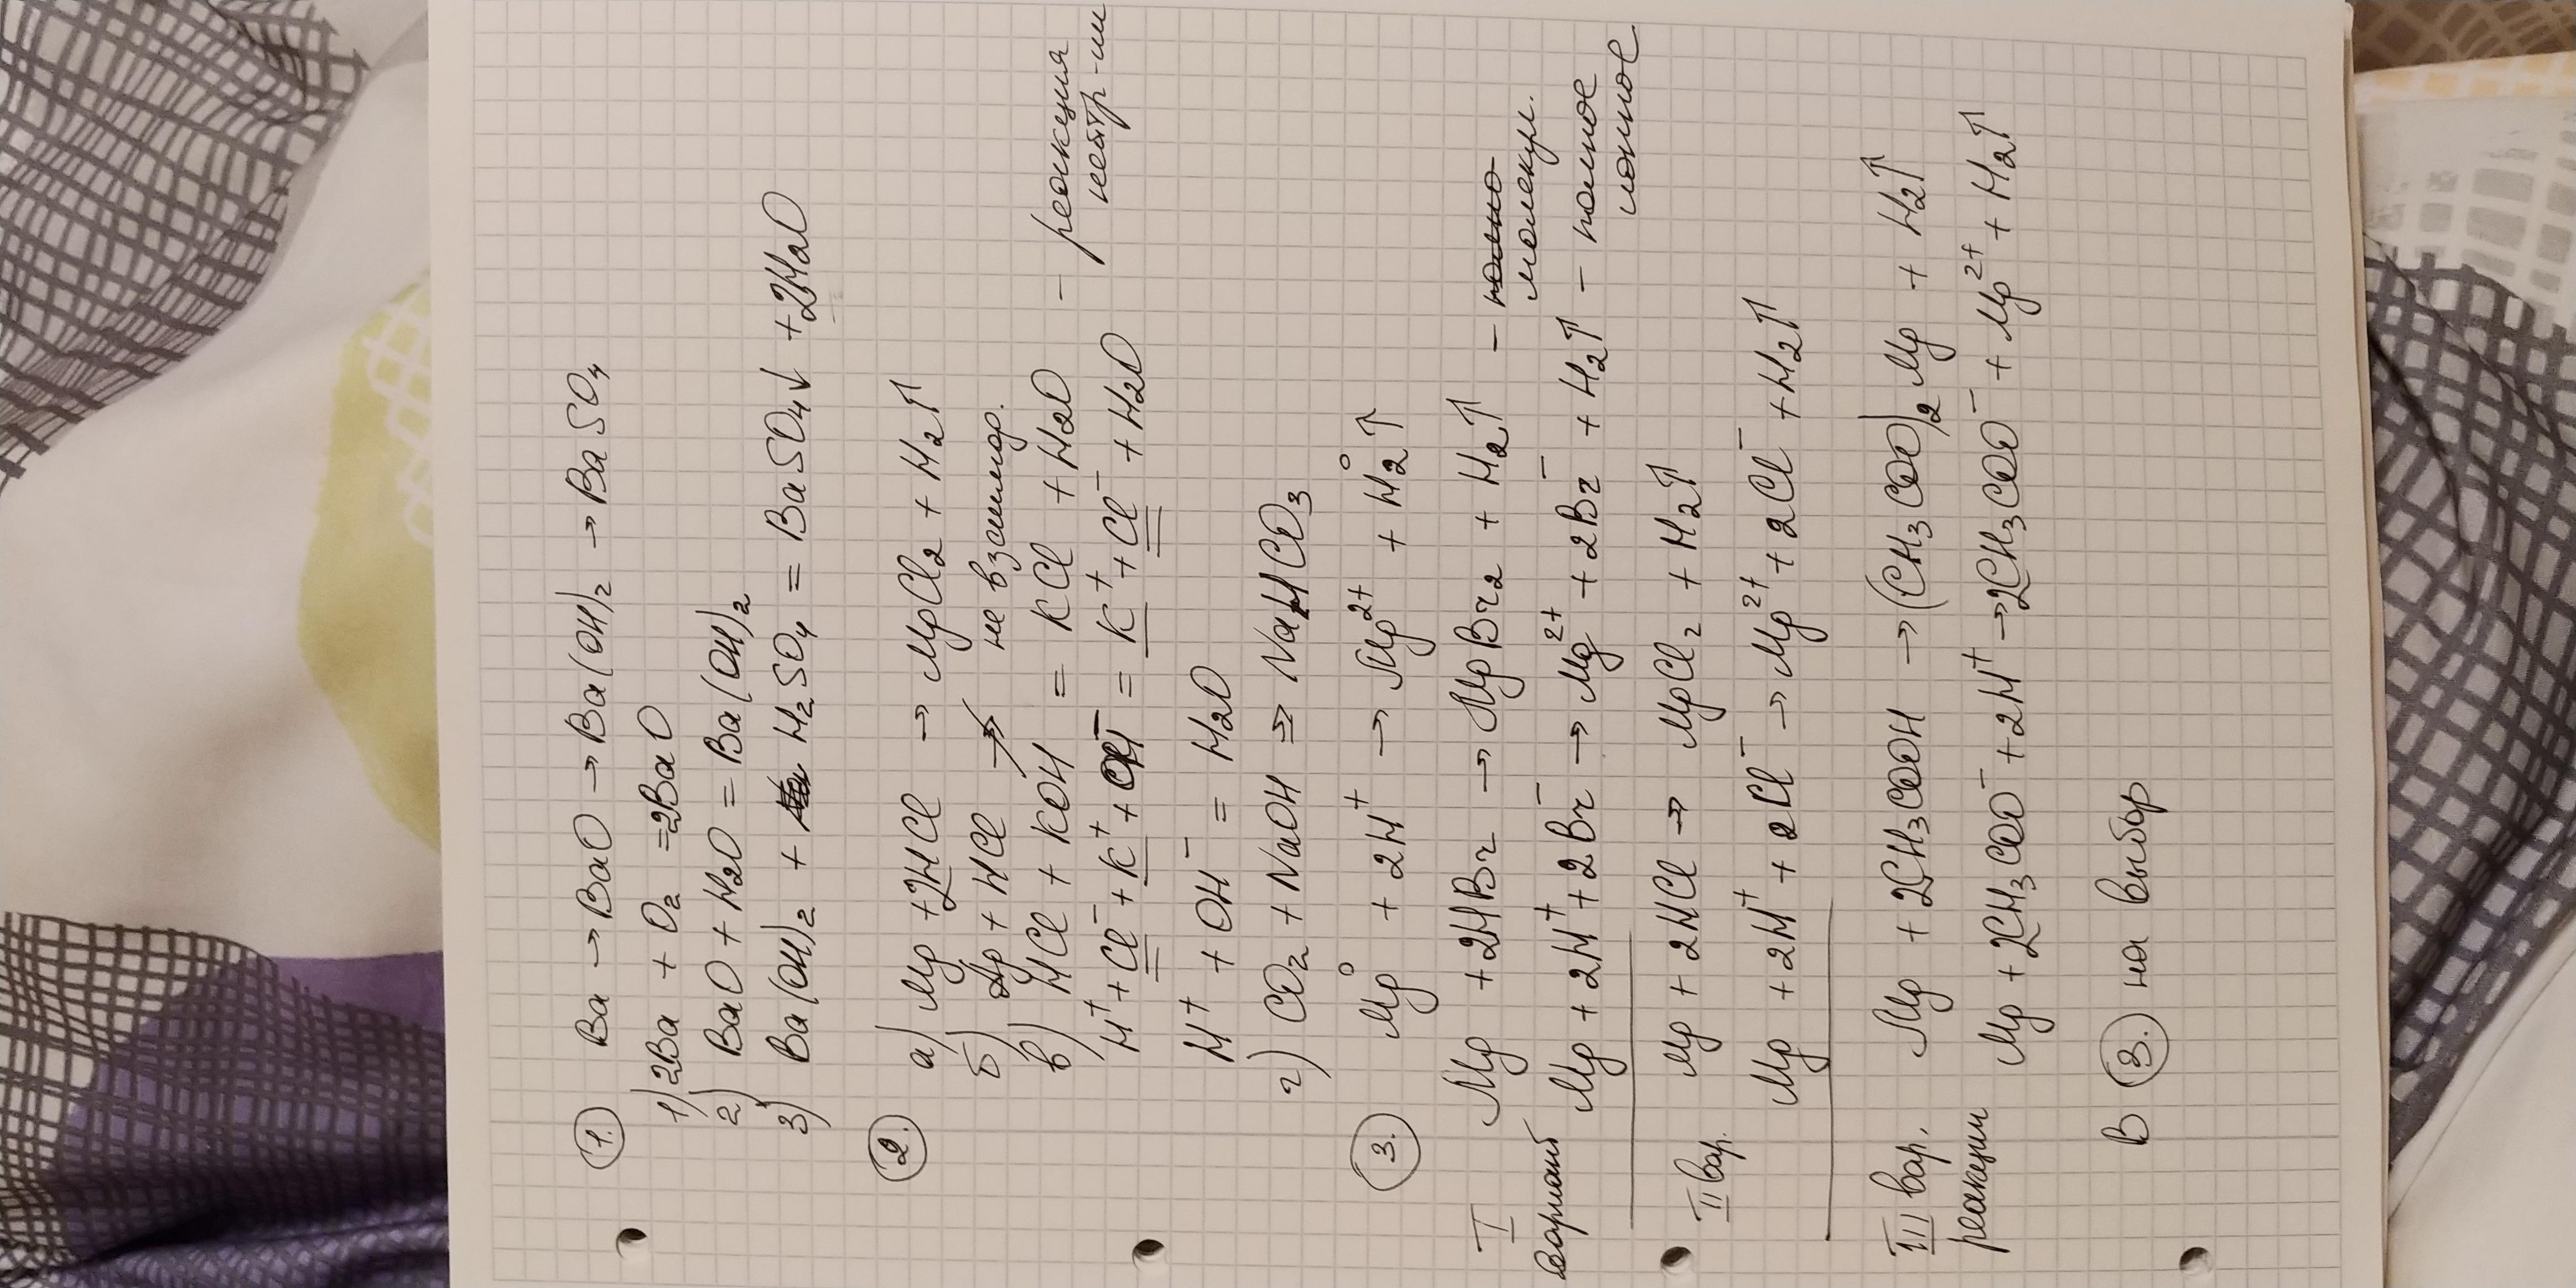 ① Ba → BaO → Ba(OH)₂ → BaSO₄
1) 2Ba + O₂ = 2BaO
2) BaO + H₂O = Ba(OH)₂
3) Ba(OH)₂ + H₂SO₄ = BaSO₄↓ + 2H₂O
② а) Mg + 2HCl → MgCl₂ + H₂↑
б) Ag + HCl ↛ не взаимод.
в) HCl + KOH = KCl + H₂O – реакция нейтр-ии
H⁺ + Cl⁻ + K⁺ + OH⁻ = K⁺ + Cl⁻ + H₂O
H⁺ + OH⁻ = H₂O
г) CO₂ + NaOH ⇒ NaHCO₃
③ Mg⁰ + 2H⁺ → Mg²⁺ + H₂⁰↑
I вариант Mg + 2HBr → MgBr₂ + H₂↑ – молекул.
Mg + 2H⁺ + 2Br⁻ → Mg²⁺ + 2Br⁻ + H₂↑ – полное ионное
II вар. Mg + 2HCl → MgCl₂ + H₂↑
Mg + 2H⁺ + 2Cl⁻ → Mg²⁺ + 2Cl⁻ + H₂↑
III вар. реакции Mg + 2CH₃COOH → (CH₃COO)₂Mg + H₂↑
Mg + 2CH₃COO⁻ + 2H⁺ → 2CH₃COO⁻ + Mg²⁺ + H₂↑
В ③ на выбор